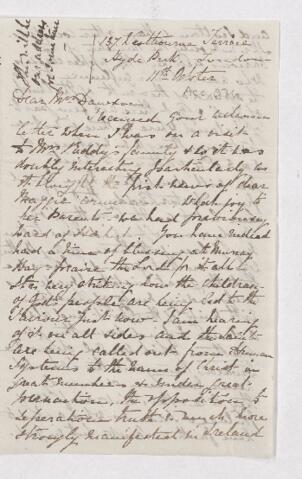 137 Westbourne Terrace
Hyde Park, London
11th
Dear Mrs Dawson
I received your welcome
letter when I was on a visit
to Mrs Peddy's family & so it was
doubly interesting particularly as
it brought the first news of dear
Maggie which joy to
her Parents - we had
heard of You have indeed
had a time of blessing at Murray
Bay - praise the Lord for it all
It is very striking how the children
of God's people are being led to the
Saviour just now - I am hearing
of it on all sides and the Saints
are being called out from human
systems to the name of Christ in
great numbers & under great
persecution, the opposition to
separation truth is much more
strongly manifested in Ireland